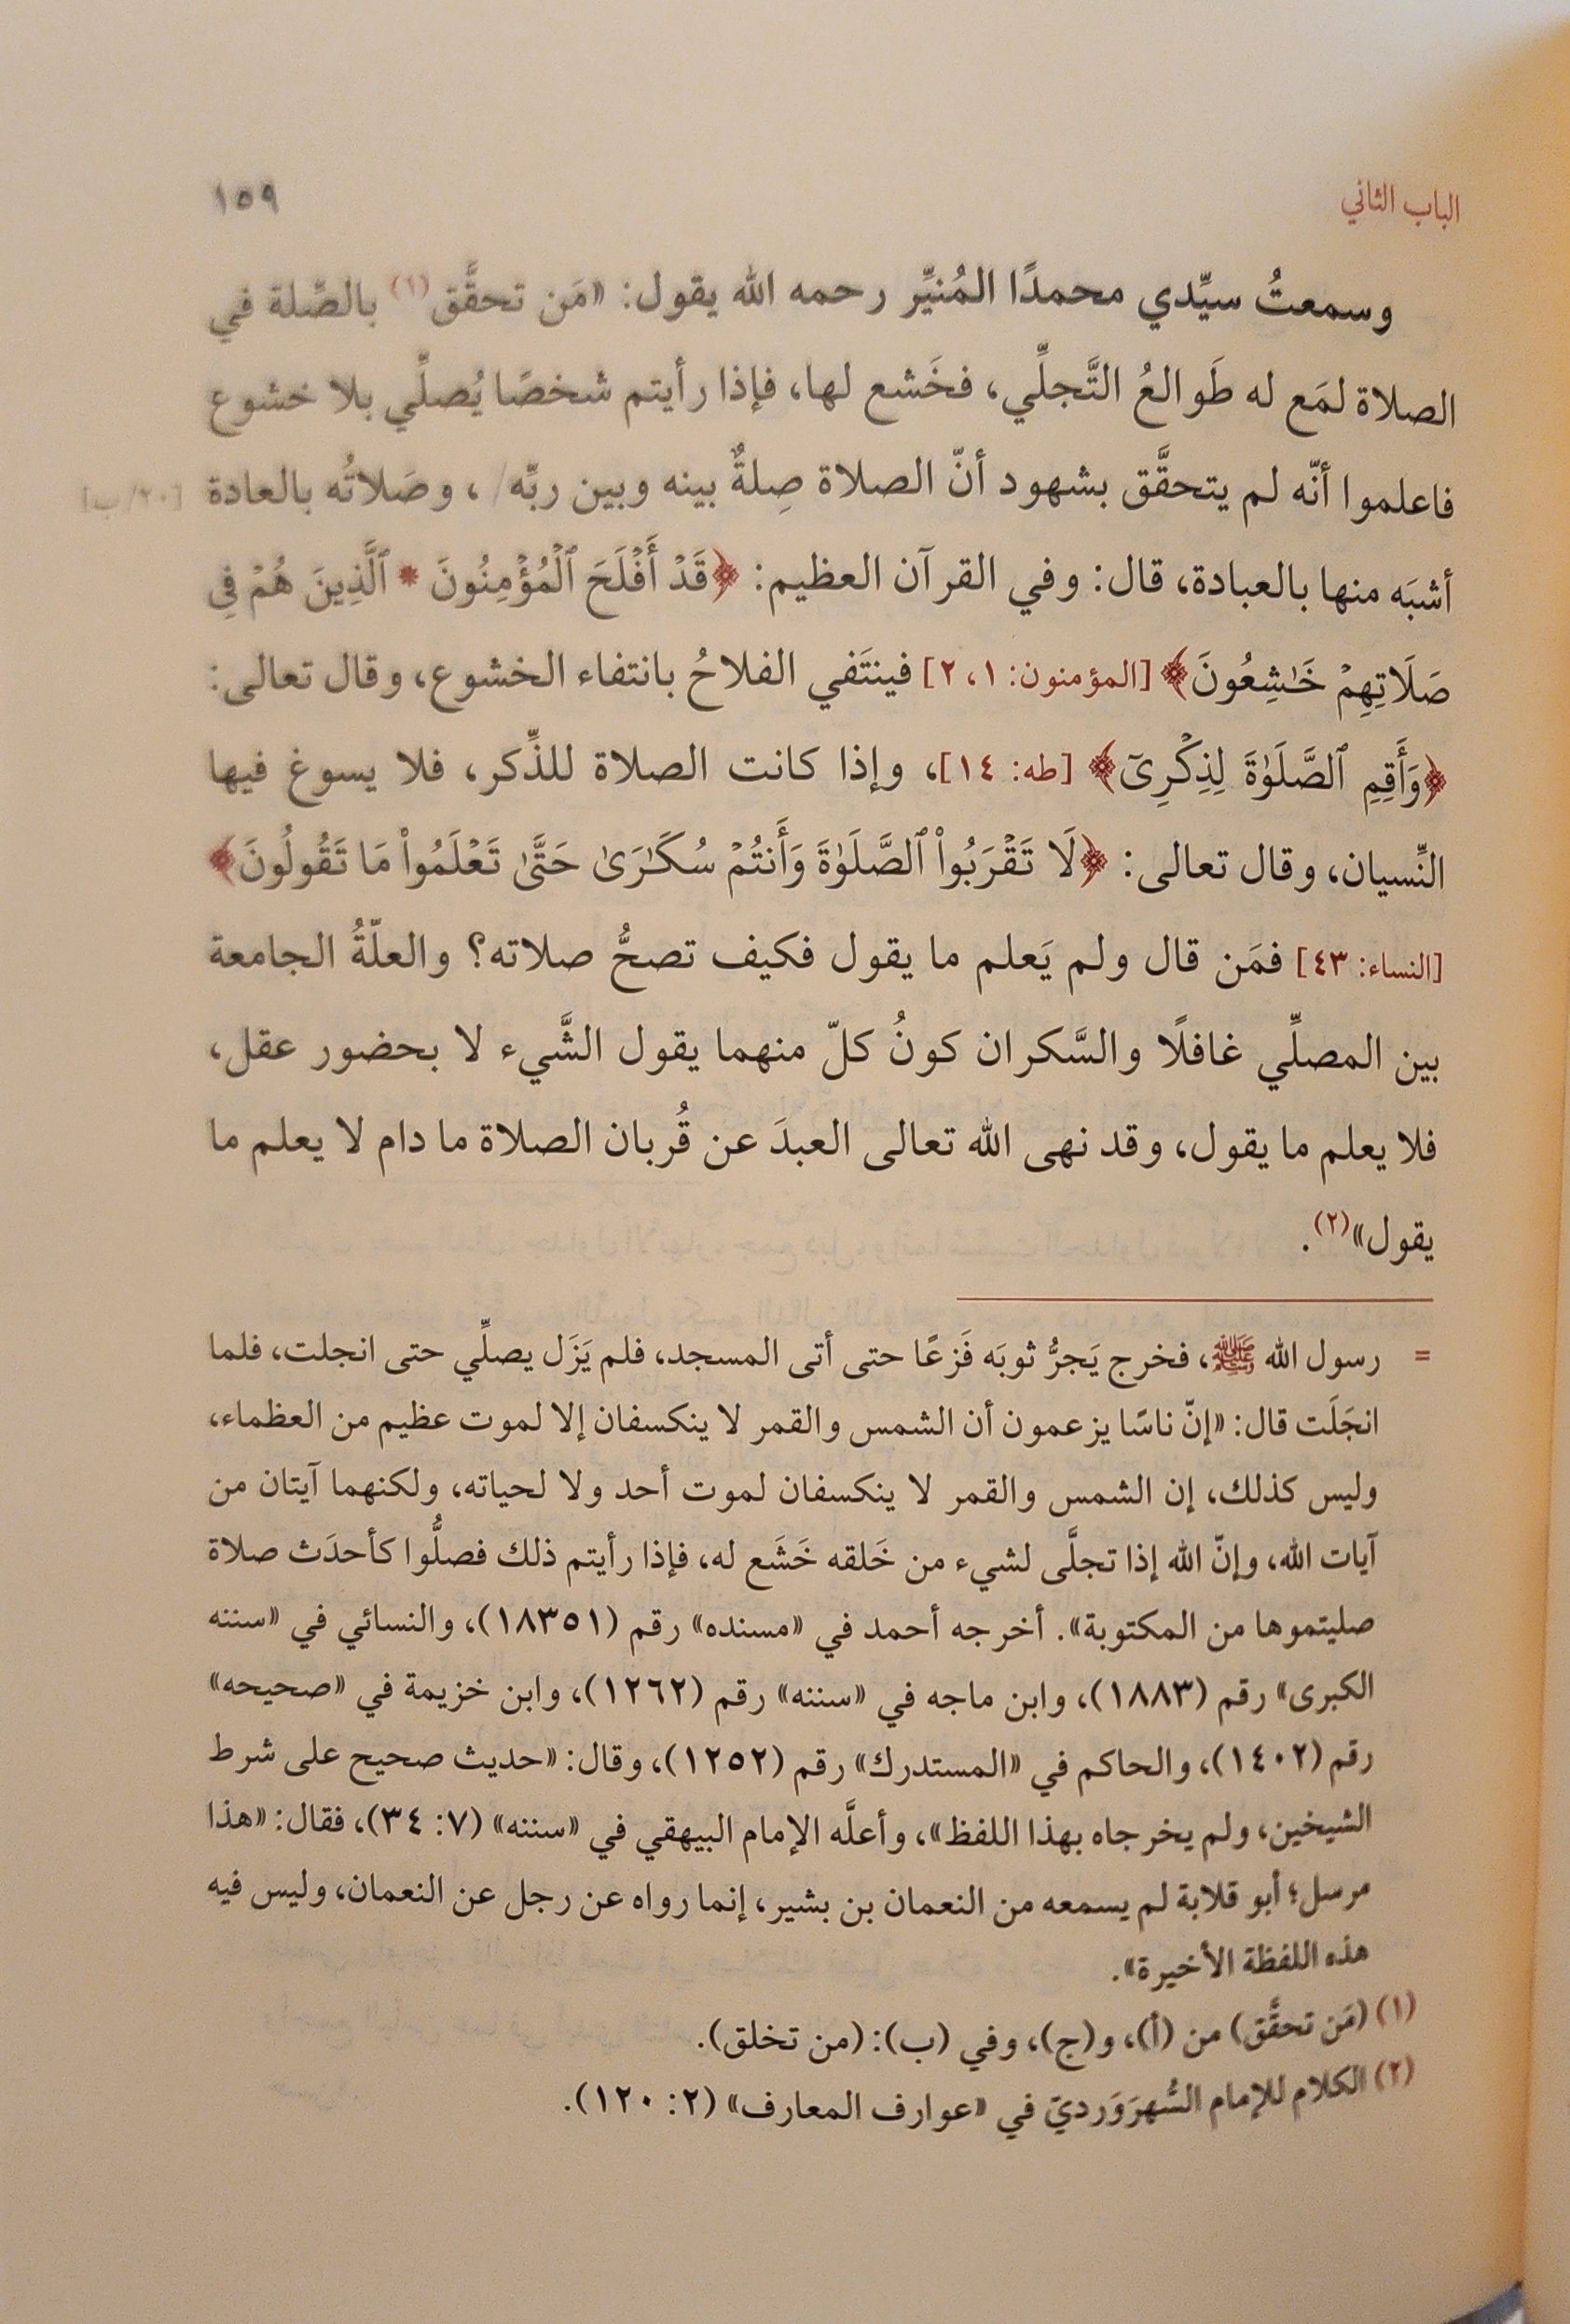 الباب الثاني ١٥٩
وسمعتُ سيِّدي محمدًا المُنيِّر رحمه الله يقول: «مَن تحقَّق(١) بالصِّلة في
الصلاة لمَع له طَوالعُ التَّجلِّي، فخَشع لها، فإذا رأيتم شخصًا يُصلِّي بلا خشوع
فاعلموا أنّه لم يتحقَّق بشهود أنّ الصلاة صِلةٌ بينه وبين ربِّه/، وصَلاتُه بالعادة [٢٠/ب]
أشبَه منها بالعبادة، قال: وفي القرآن العظيم: ﴿قَدْ أَفْلَحَ ٱلْمُؤْمِنُونَ * ٱلَّذِينَ هُمْ فِي
صَلَاتِهِمْ خَـٰشِعُونَ﴾ [المؤمنون: ١، ٢] فينتَفي الفلاحُ بانتفاء الخشوع، وقال تعالى:
﴿وَأَقِمِ ٱلصَّلَوٰةَ لِذِكْرِىٓ﴾ [طه: ١٤]، وإذا كانت الصلاة للذِّكر، فلا يسوغ فيها
النِّسيان، وقال تعالى: ﴿لَا تَقْرَبُوا۟ ٱلصَّلَوٰةَ وَأَنتُمْ سُكَـٰرَىٰ حَتَّىٰ تَعْلَمُوا۟ مَا تَقُولُونَ﴾
[النساء: ٤٣] فمَن قال ولم يَعلم ما يقول فكيف تصحُّ صلاته؟ والعلّةُ الجامعة
بين المصلِّي غافلًا والسَّكران كونُ كلّ منهما يقول الشَّيء لا بحضور عقل،
فلا يعلم ما يقول، وقد نهى الله تعالى العبدَ عن قُربان الصلاة ما دام لا يعلم ما
يقول»(٢).
= رسول الله ﷺ، فخرج يَجرُّ ثوبَه فَزعًا حتى أتى المسجد، فلم يَزَل يصلِّي حتى انجلت، فلما
انجَلَت قال: «إنّ ناسًا يزعمون أن الشمس والقمر لا ينكسفان إلا لموت عظيم من العظماء،
وليس كذلك، إن الشمس والقمر لا ينكسفان لموت أحد ولا لحياته، ولكنهما آيتان من
آيات الله، وإنّ الله إذا تجلَّى لشيء من خَلقه خَشَع له، فإذا رأيتم ذلك فصلُّوا كأحدَث صلاة
صليتموها من المكتوبة». أخرجه أحمد في «مسنده» رقم (١٨٣٥١)، والنسائي في «سننه
الكبرى» رقم (١٨٨٣)، وابن ماجه في «سننه» رقم (١٢٦٢)، وابن خزيمة في «صحيحه»
رقم (١٤٠٢)، والحاكم في «المستدرك» رقم (١٢٥٢)، وقال: «حديث صحيح على شرط
الشيخين، ولم يخرجاه بهذا اللفظ»، وأعلَّه الإمام البيهقي في «سننه» (٧: ٣٤)، فقال: «هذا
مرسل؛ أبو قلابة لم يسمعه من النعمان بن بشير، إنما رواه عن رجل عن النعمان، وليس فيه
هذه اللفظة الأخيرة».
(١) (مَن تحقَّق) من (أ)، و(ج)، وفي (ب): (من تخلق).
(٢) الكلام للإمام السُّهرَوَرديّ في «عوارف المعارف» (٢: ١٢٠).